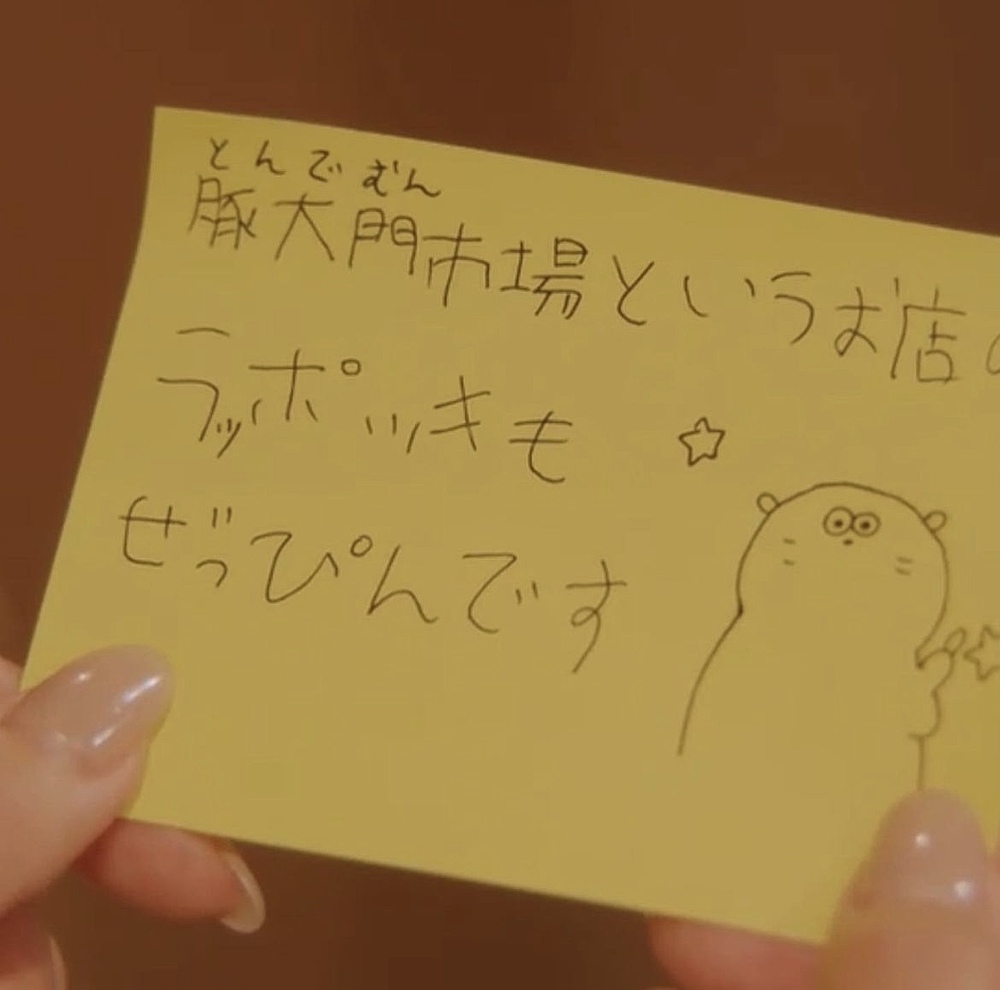 とんでむん
豚大門市場というお店の
ラッポッキも
ぜっぴんです